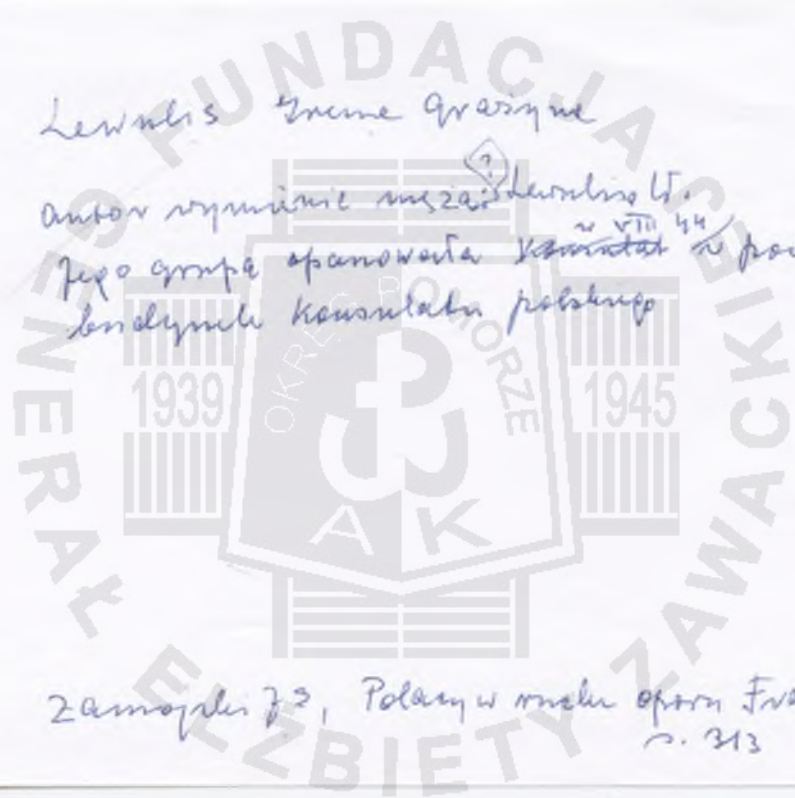 Lewulis Irena Grażyna
(?)
autor wymienia męża: Lewulisa W.
w VIII 44
Jego grupa opanowała Konsulat w
budynek Konsulatu polskiego
Zamojski J, Polacy w ruchu oporu
s. 313
FUNDACJA GENERAŁ ELŻBIETY ZAWACKIEJ
OKRĘG POMORZE
1939
1945
AK